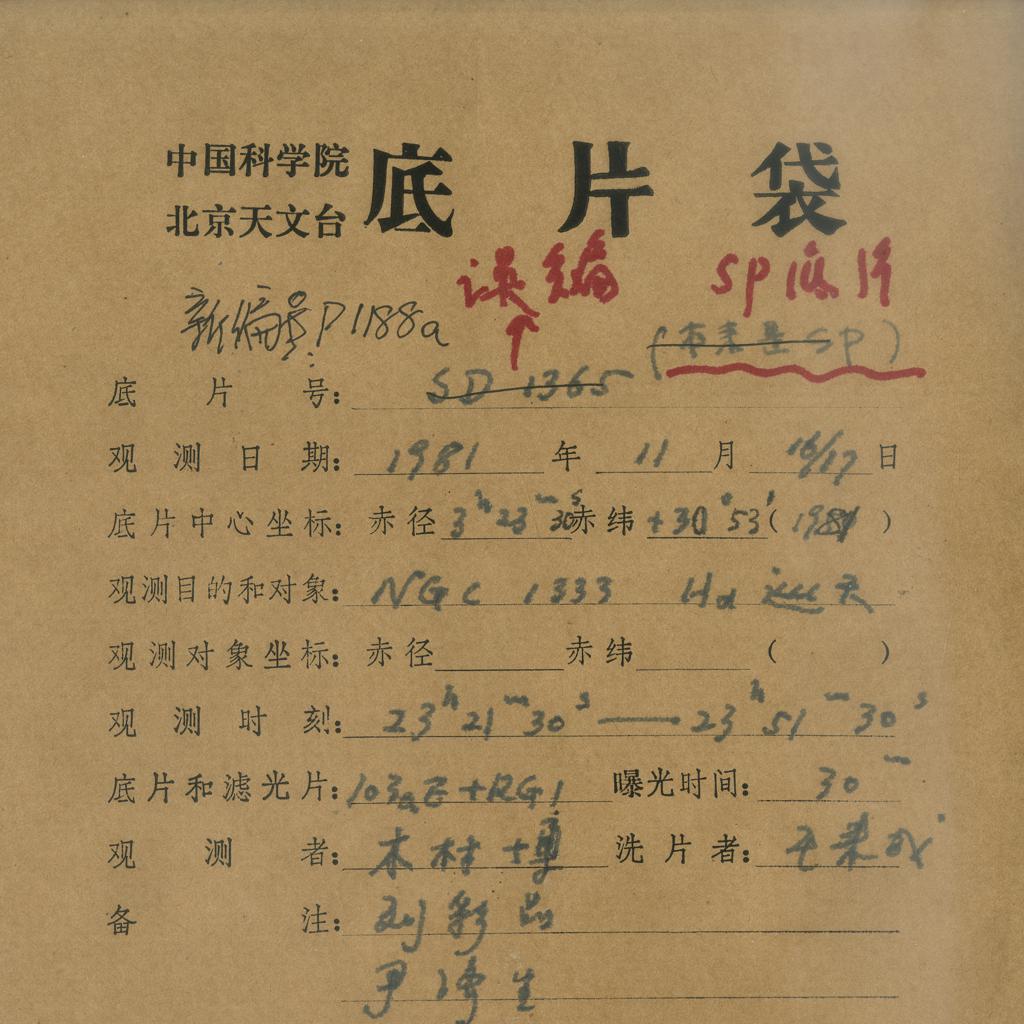 中国科学院
北京天文台
底片袋
误编 SP底片
新编号:P1188a
底片号: SD 1365
观测日期: 1981 年 11 月 16/17 日
底片中心坐标: 赤径 3h 23m 30s 赤纬 +30° 53′ (1981)
观测目的和对象: NGC 1333 Hα 巡天
观测对象坐标: 赤径 赤纬 ( )
观测时刻: 23h 21m 30s — 23h 51m 30s
底片和滤光片: 103aE+RG1 曝光时间: 30m
观测者: 木村博 洗片者:
备注: 刘彩品
尹济生